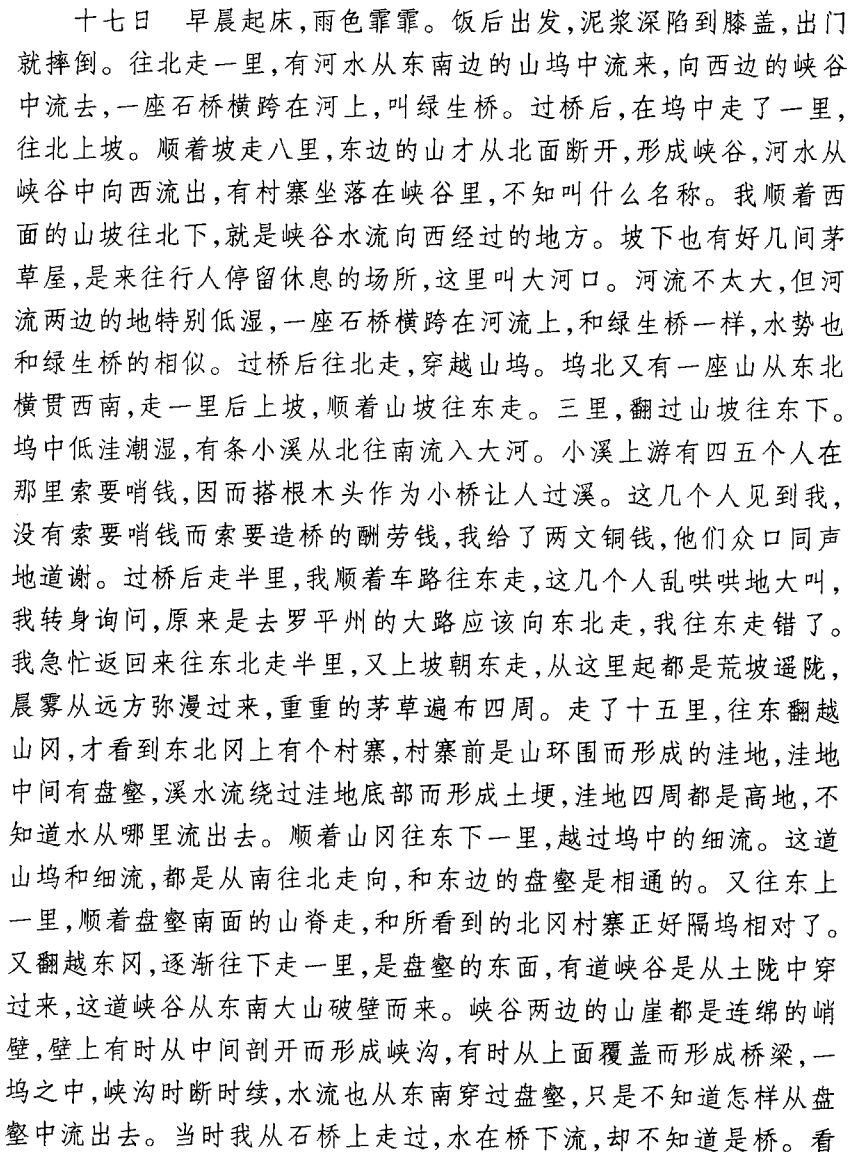 十七日　早晨起床,雨色霏霏。饭后出发,泥浆深陷到膝盖,出门
就摔倒。往北走一里,有河水从东南边的山坞中流来,向西边的峡谷
中流去,一座石桥横跨在河上,叫绿生桥。过桥后,在坞中走了一里,
往北上坡。顺着坡走八里,东边的山才从北面断开,形成峡谷,河水从
峡谷中向西流出,有村寨坐落在峡谷里,不知叫什么名称。我顺着西
面的山坡往北下,就是峡谷水流向西经过的地方。坡下也有好几间茅
草屋,是来往行人停留休息的场所,这里叫大河口。河流不太大,但河
流两边的地特别低湿,一座石桥横跨在河流上,和绿生桥一样,水势也
和绿生桥的相似。过桥后往北走,穿越山坞。坞北又有一座山从东北
横贯西南,走一里后上坡,顺着山坡往东走。三里,翻过山坡往东下。
坞中低洼潮湿,有条小溪从北往南流入大河。小溪上游有四五个人在
那里索要哨钱,因而搭根木头作为小桥让人过溪。这几个人见到我,
没有索要哨钱而索要造桥的酬劳钱,我给了两文铜钱,他们众口同声
地道谢。过桥后走半里,我顺着车路往东走,这几个人乱哄哄地大叫,
我转身询问,原来是去罗平州的大路应该向东北走,我往东走错了。
我急忙返回来往东北走半里,又上坡朝东走,从这里起都是荒坡遥陇,
晨雾从远方弥漫过来,重重的茅草遍布四周。走了十五里,往东翻越
山冈,才看到东北冈上有个村寨,村寨前是山环围而形成的洼地,洼地
中间有盘壑,溪水流绕过洼地底部而形成土埂,洼地四周都是高地,不
知道水从哪里流出去。顺着山冈往东下一里,越过坞中的细流。这道
山坞和细流,都是从南往北走向,和东边的盘壑是相通的。又往东上
一里,顺着盘壑南面的山脊走,和所看到的北冈村寨正好隔坞相对了。
又翻越东冈,逐渐往下走一里,是盘壑的东面,有道峡谷是从土陇中穿
过来,这道峡谷从东南大山破壁而来。峡谷两边的山崖都是连绵的峭
壁,壁上有时从中间剖开而形成峡沟,有时从上面覆盖而形成桥梁,一
坞之中,峡沟时断时续,水流也从东南穿过盘壑,只是不知道怎样从盘
壑中流出去。当时我从石桥上走过,水在桥下流,却不知道是桥。看